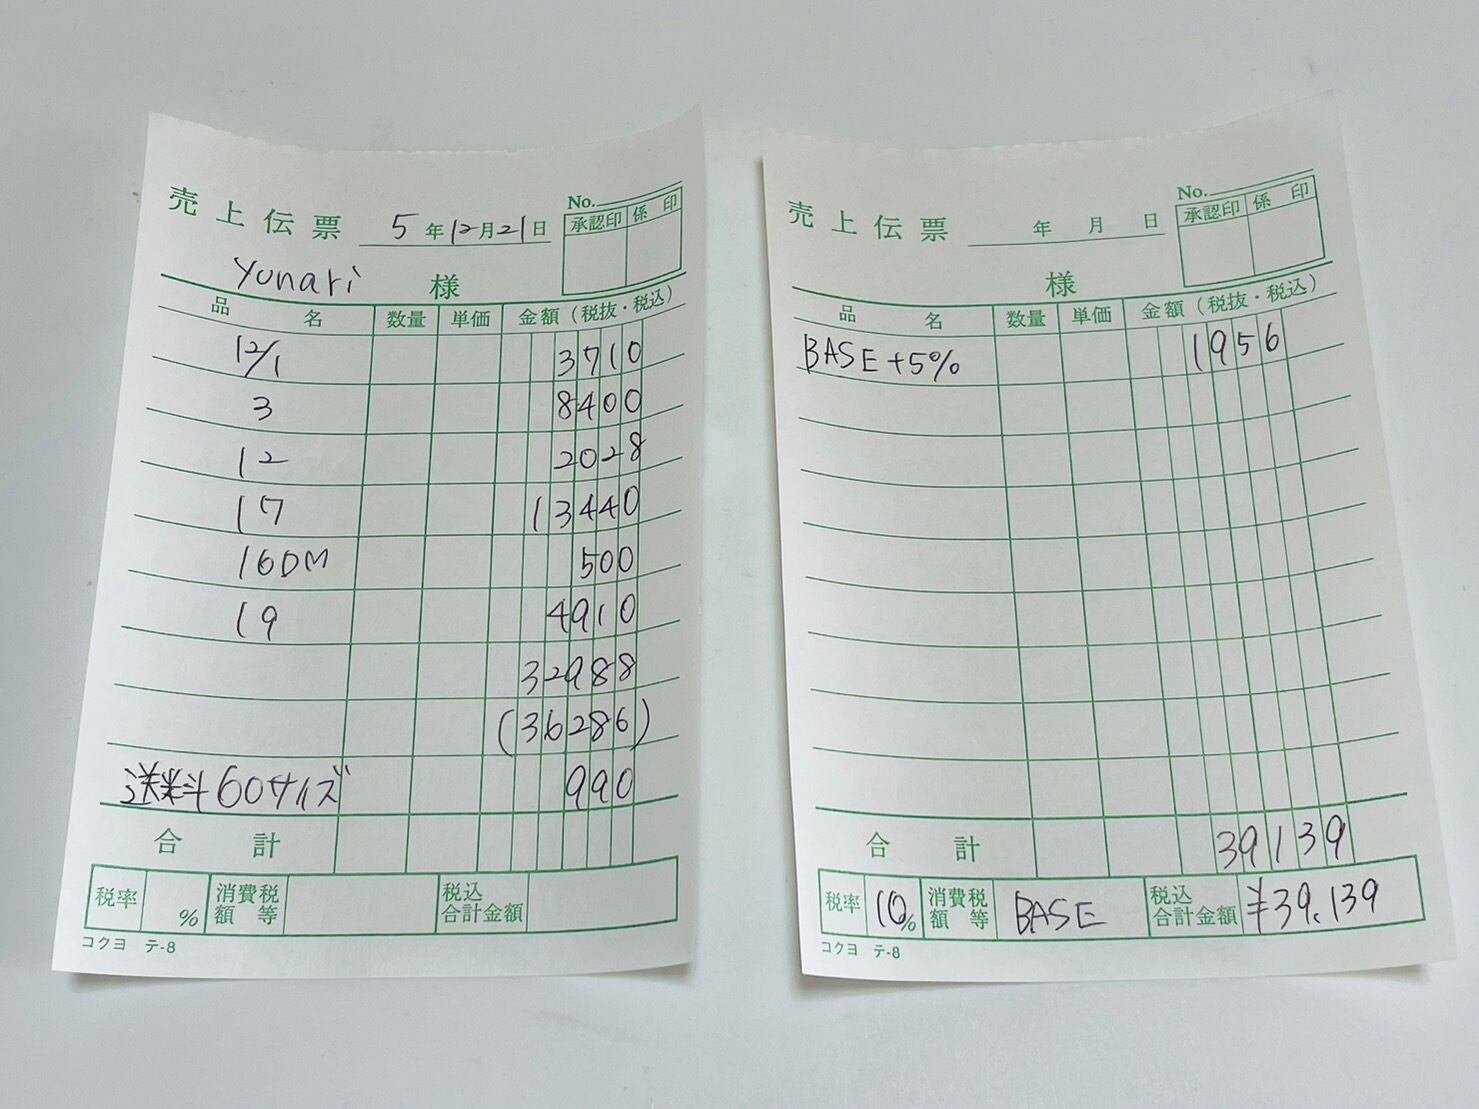 売上伝票 5年12月21日 No.
承認印 係印
Yunari 様
品名 数量 単価 金額(税抜・税込)
12/1 3710
3 8400
12 2028
17 13440
16DM 500
19 4910
32988
(36286)
送料60サイズ 990
合計
税率 % 消費税額等 税込合計金額
コクヨ テ-8
売上伝票 年 月 日 No.
承認印 係印
様
品名 数量 単価 金額(税抜・税込)
BASE+5% 1956
合計 39139
税率 10% 消費税額等 BASE 税込合計金額 ¥39,139
コクヨ テ-8